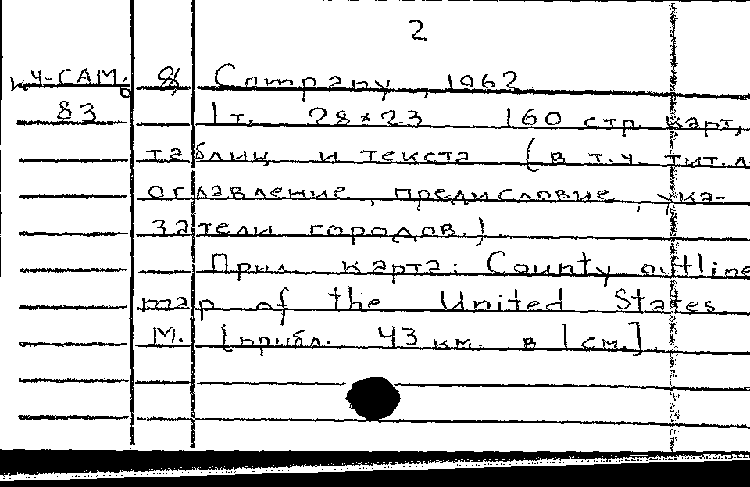 2
Ч-САМ. & Company, 1962
83 1 т. 28×23 160 стр. карт,
таблиц и текста (в т.ч. тит.л
оглавление, предисловие, ука-
затели городов.)
Прил. карта: County outline
map of the United States
М. [прибл. 43 км. в 1 см.]